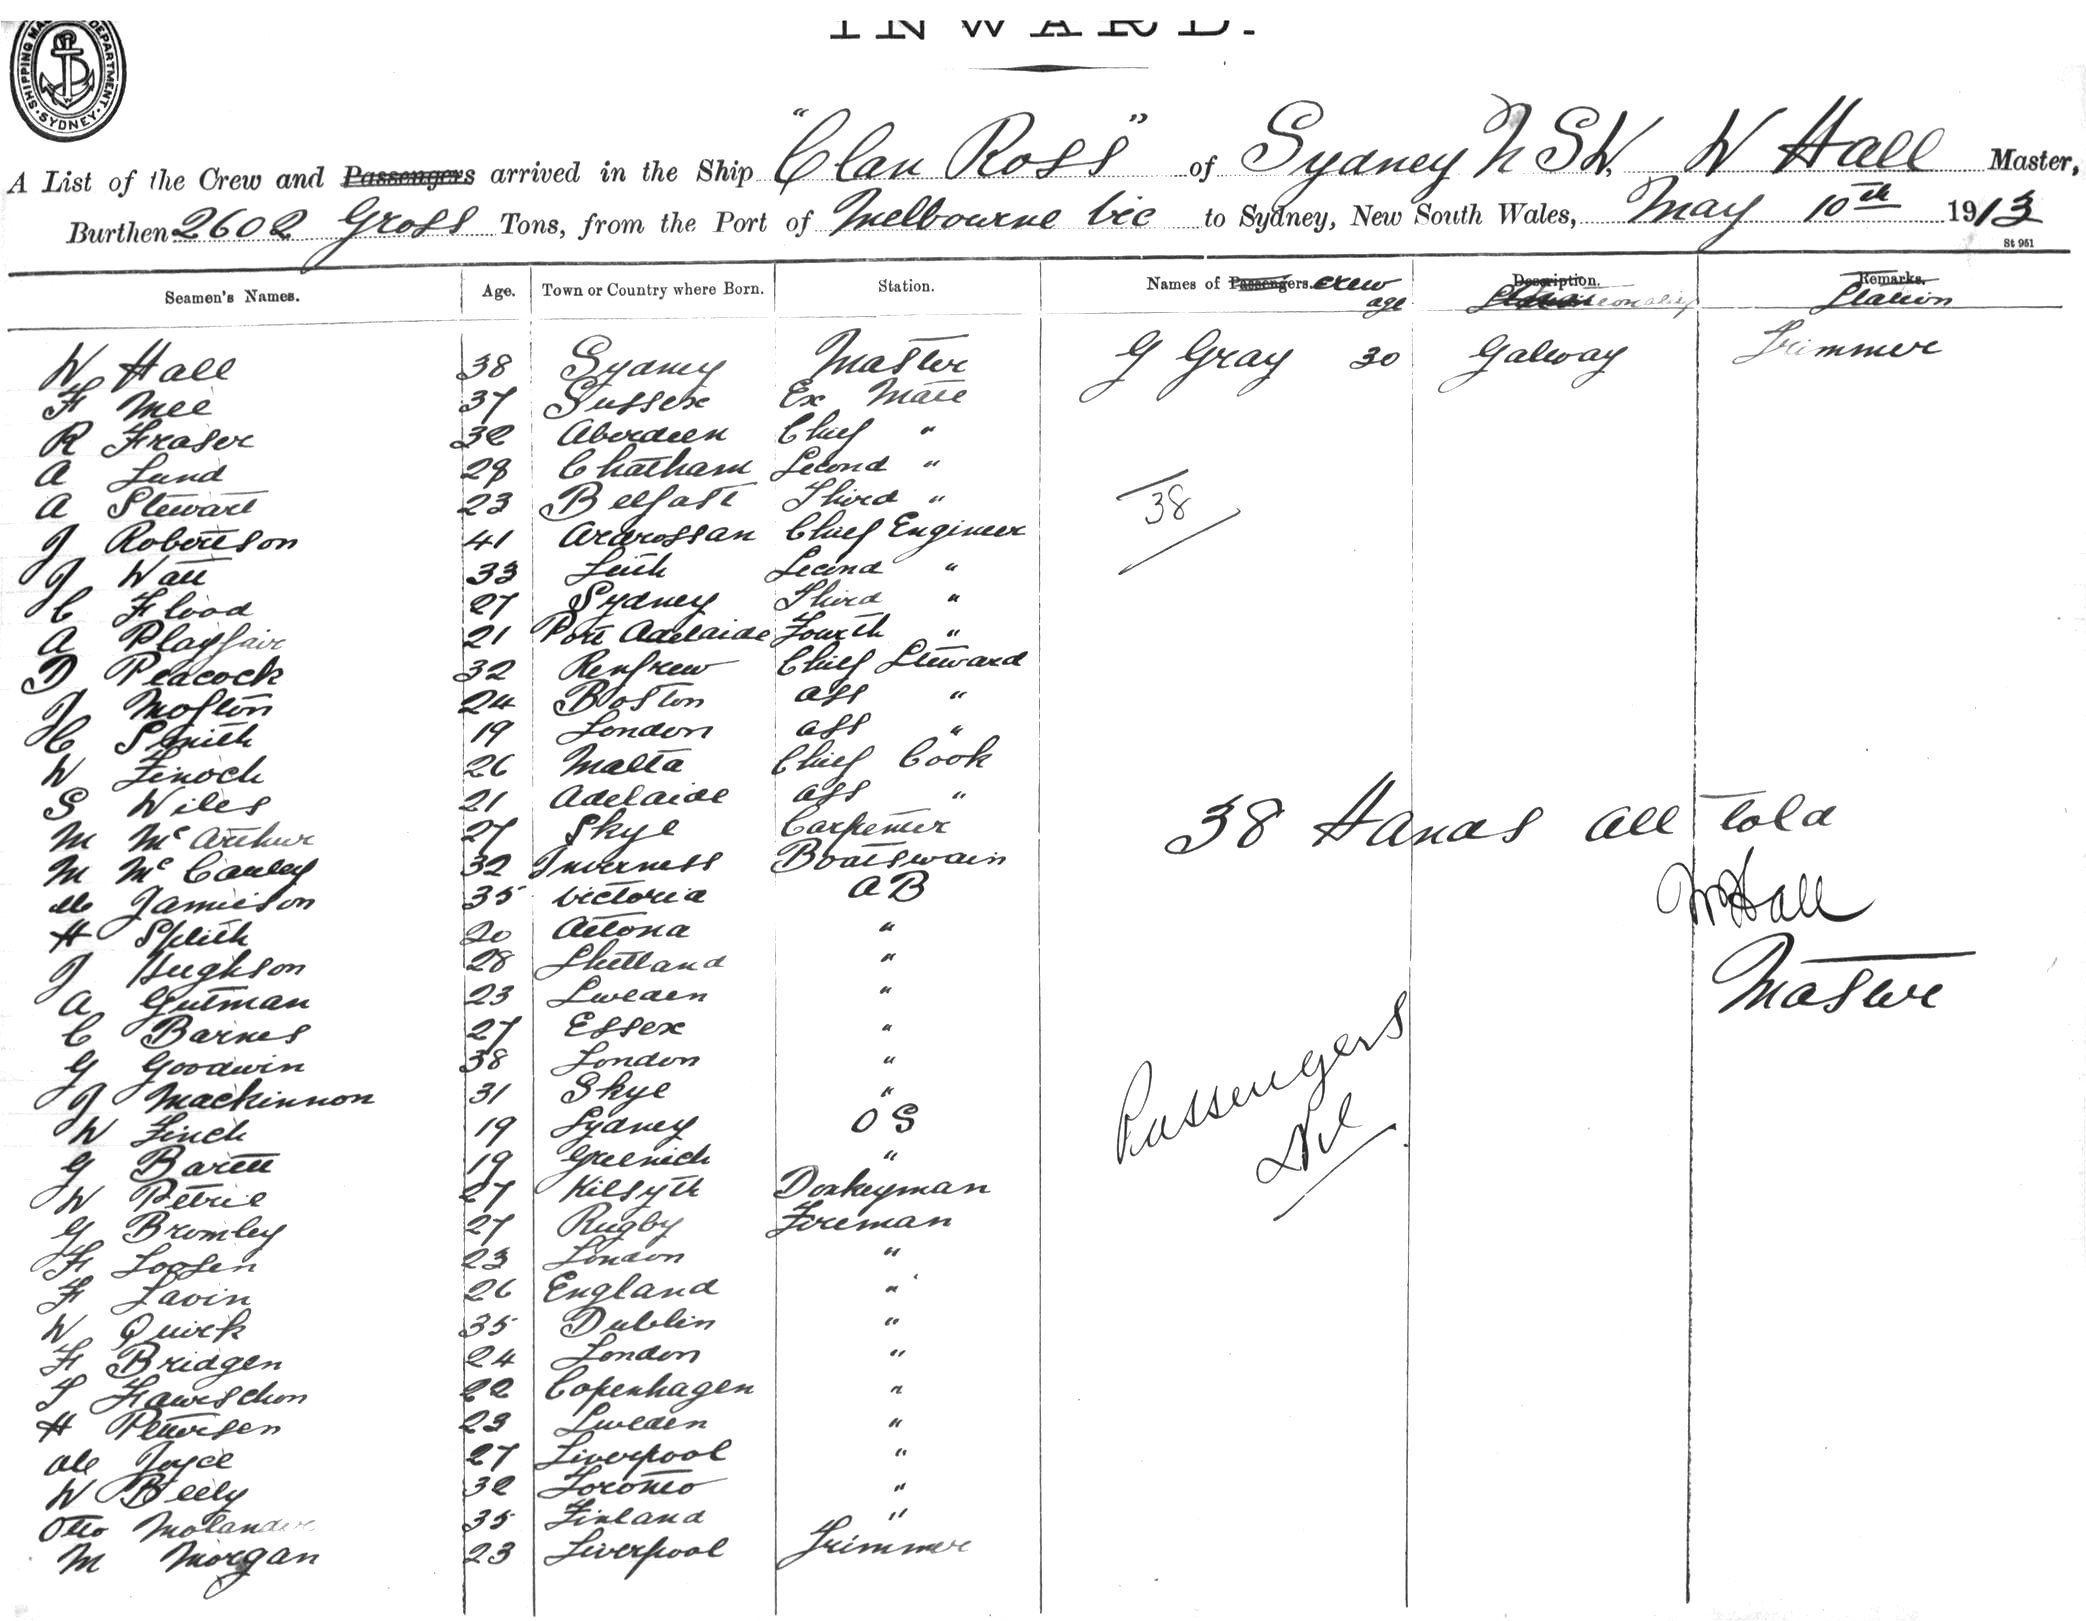 INWARD.
SHIPPING MASTER'S DEPARTMENT. SYDNEY.
A List of the Crew and Passengers arrived in the Ship "Clan Ross" of Sydney N S W, W Hall Master,
Burthen 2602 Gross Tons, from the Port of Melbourne Vic to Sydney, New South Wales, May 10th 1913
St 951
Seamen's Names. Age. Town or Country where Born. Station. Names of Passengers. crew age Description. Remarks. Station
W Hall 38 Sydney Master G Gray 30 Galway Trimmer
F Mee 37 Sussex Ex Mate
R Fraser 32 Aberdeen Chief "
A Lund 28 Chatham Second "
A Stewart 23 Belfast Third "
38
J Robertson 41 Ardrossan Chief Engineer
J Watt 33 Leith Second "
C Flood 27 Sydney Third "
A Playfair 21 Port Adelaide Fourth "
D Peacock 32 Renfrew Chief Steward
J 24 Boston ass "
C Smith 19 London ass "
W Finoch 26 Malta Chief Cook
S Wiles 21 Adelaide ass "
M McArthur 27 Skye Carpenter
38 Hands all told
M McCauley 32 Inverness Boatswain
Jamieson 35 Victoria A B
W Hall
H Splith 20 Altona "
J Hughson 28 Shetland "
Master
A Gutman 23 Sweden "
C Barnes 27 Essex "
G Goodwin 38 London "
J Mackinnon 31 Skye "
Passengers
Nil
W Finch 19 Sydney O S
G 19 Greenich "
W Petrie 27 Kilsyth Donkeyman
G Bromley 27 Rugby Fireman
F 23 London "
F Lavin 26 England "
W Quirk 35 Dublin "
F Bridgen 24 London "
22 Copenhagen "
H Petersen 23 Sweden "
Joyce 27 Liverpool "
W Beely 32 Toronto "
Otto Molander 35 Finland "
M Morgan 23 Liverpool Trimmer